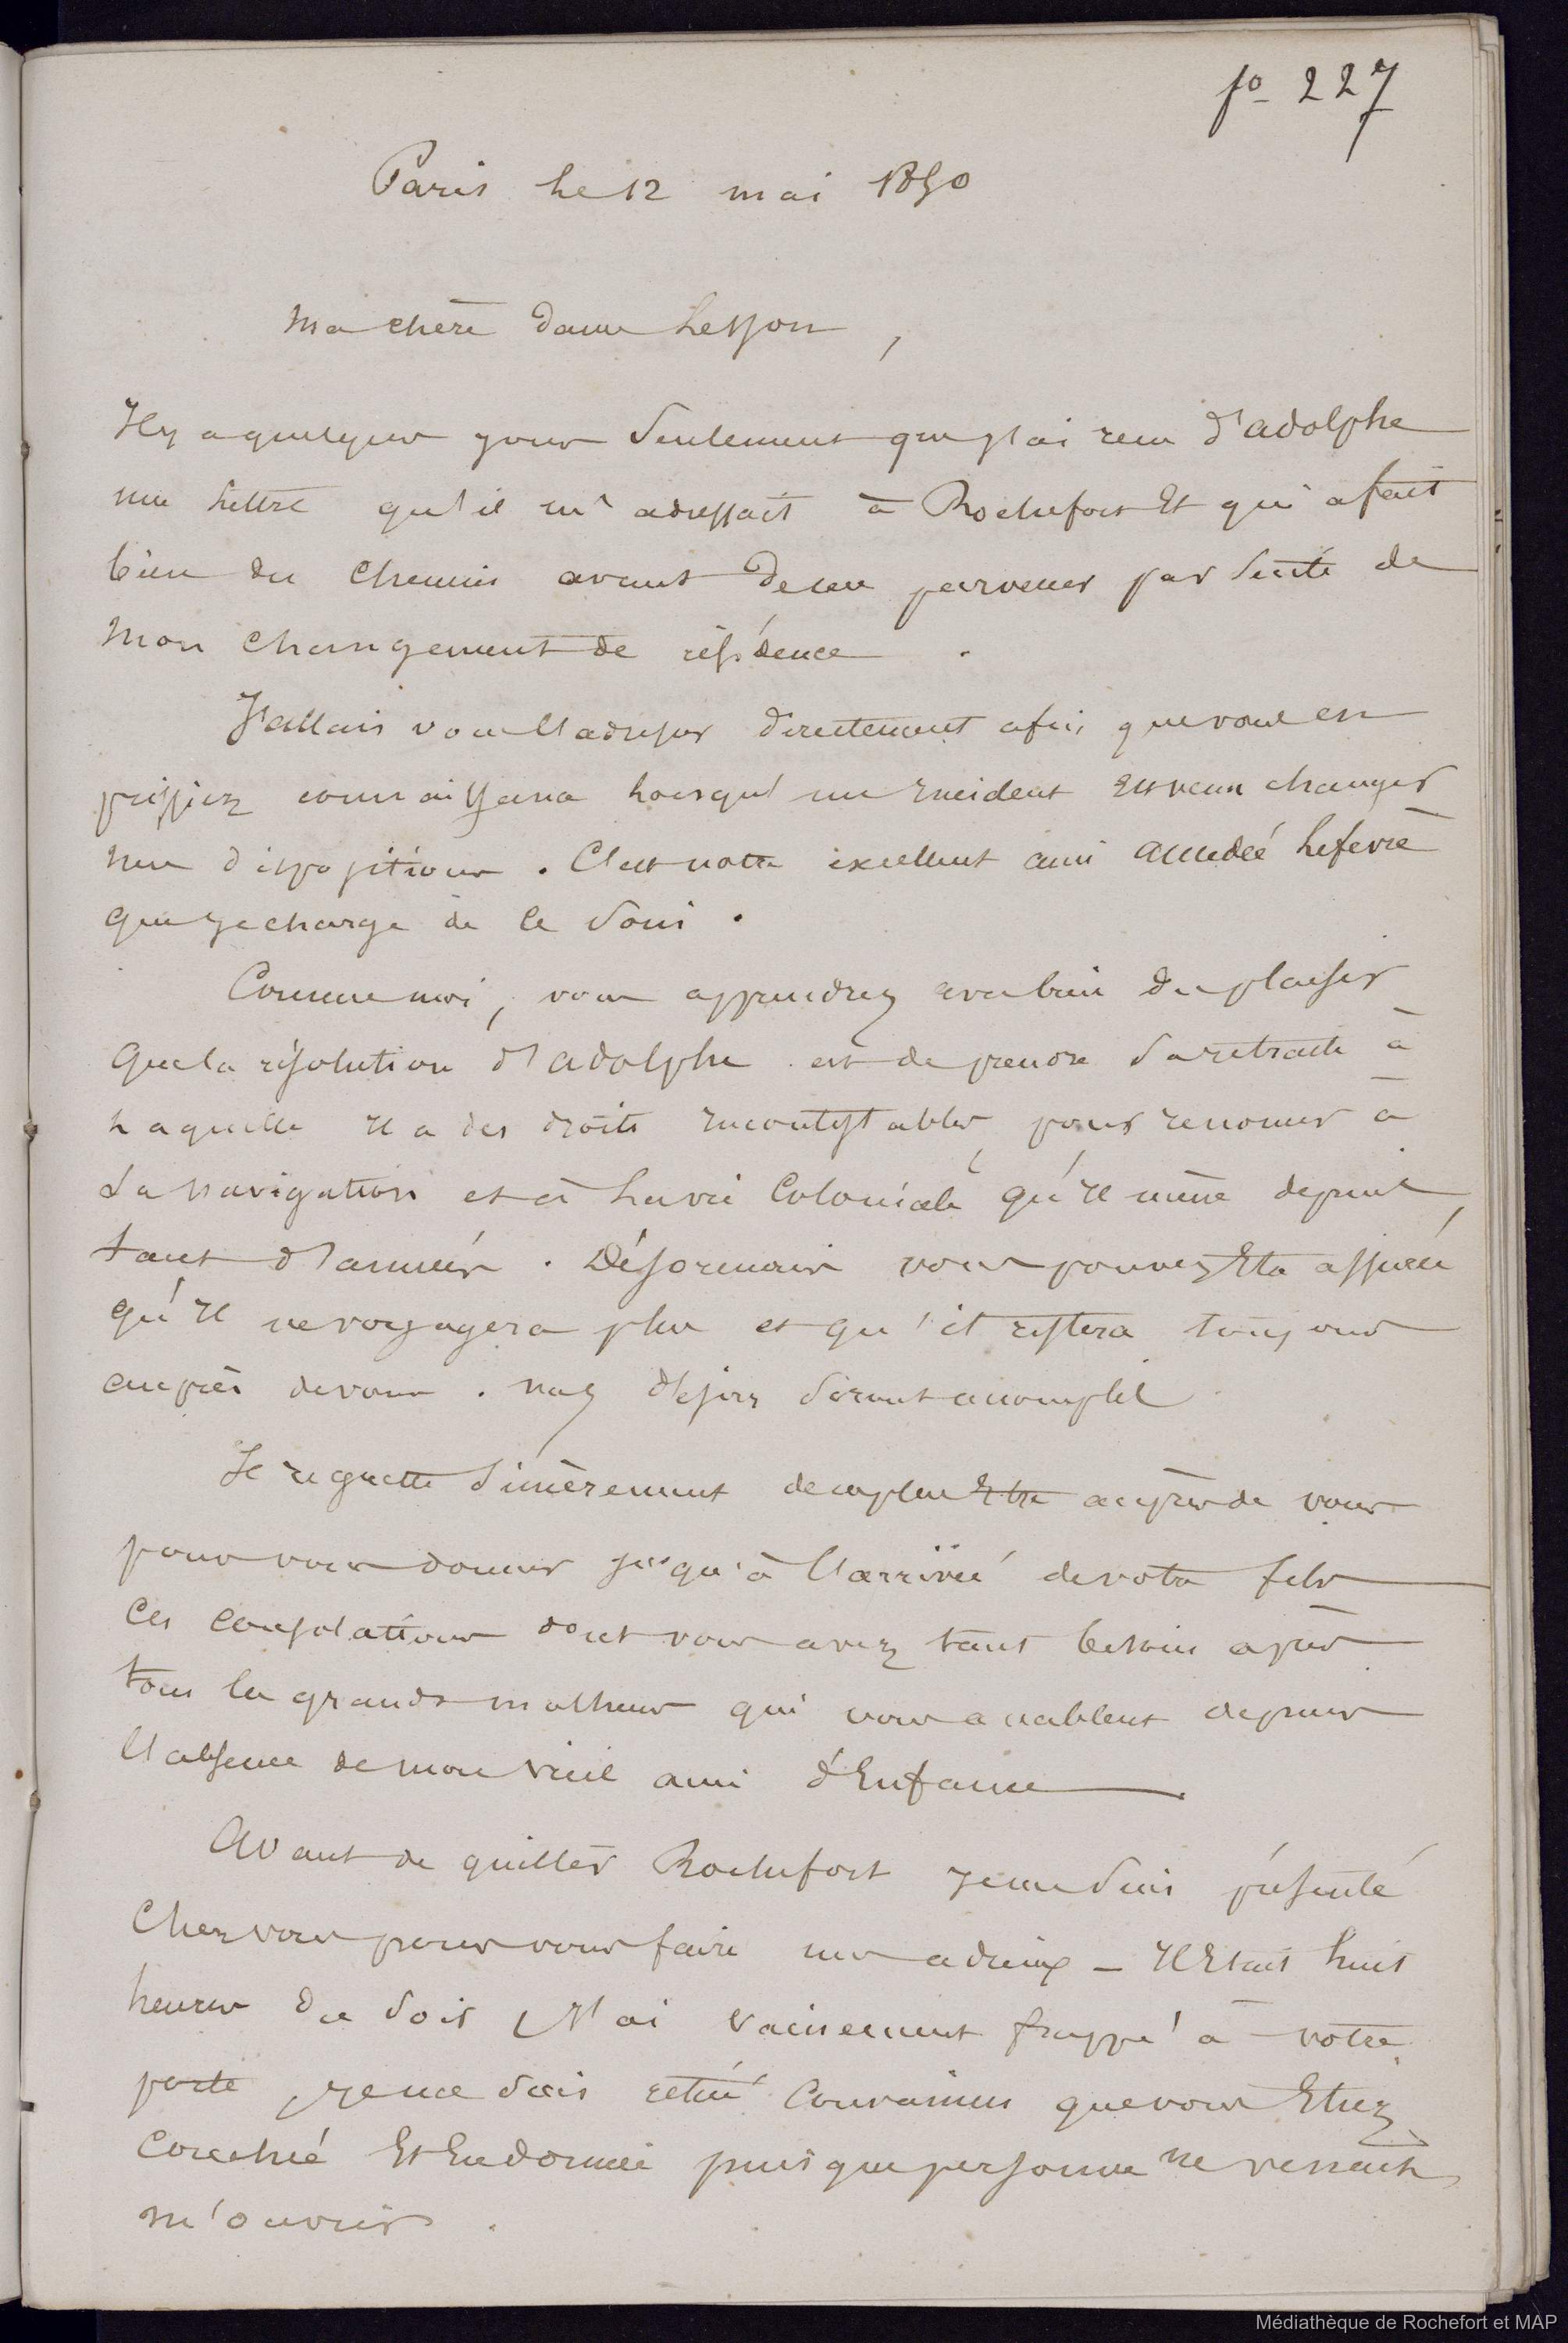 fo 227
Paris le 12 mai 1850
Ma chère dame Lesson,
Il y a quelques jours seulement que j'ai reçu d'adolphe
une lettre qu'il m'adressait à Rochefort Et qui a fait
bien du chemin avant de me parvenir par suite de
mon changement de résidence.
J'allais vous l'adresser directement afin que vous en
puissiez connaissance lorsqu'un Incident Est venu changer
mes dispositions. C'est notre excellent ami amédée Lefevre
qui se charge de ce soin.
Comme moi, vous apprendrez avec bien du plaisir
que la résolution d'adolphe est de prendre sa retraite à
Laquelle Il a des droits Incontestables, pour renoncer à
La navigation et à La vie Coloniale qu'Il mène depuis,
tant d'années. Désormais vous pouvez Etre assurée
qu'Il ne voyagera plus et qu'il restera toujours
auprès de vous. vos désirs seront accomplis
Je regrette sincèrement de ne plus Etre auprès de vous
pour vous donner jusqu'à l'arrivée de votre fils
ces consolations dont vous avez tant besoin après
tous les grands malheurs qui vous accablent depuis
l'absence de mon vieil ami d'Enfance.
Avant de quitter Rochefort je me suis présenté
Chez vous pour vous faire mes adieux - Il Etait huit
heures du soir, J'ai vainement frappé à votre
porte, je me suis retiré Convaincu que vous Etiez
couchée Et Endormie puisque personne ne venait
m'ouvrir.
Médiathèque de Rochefort et MAP